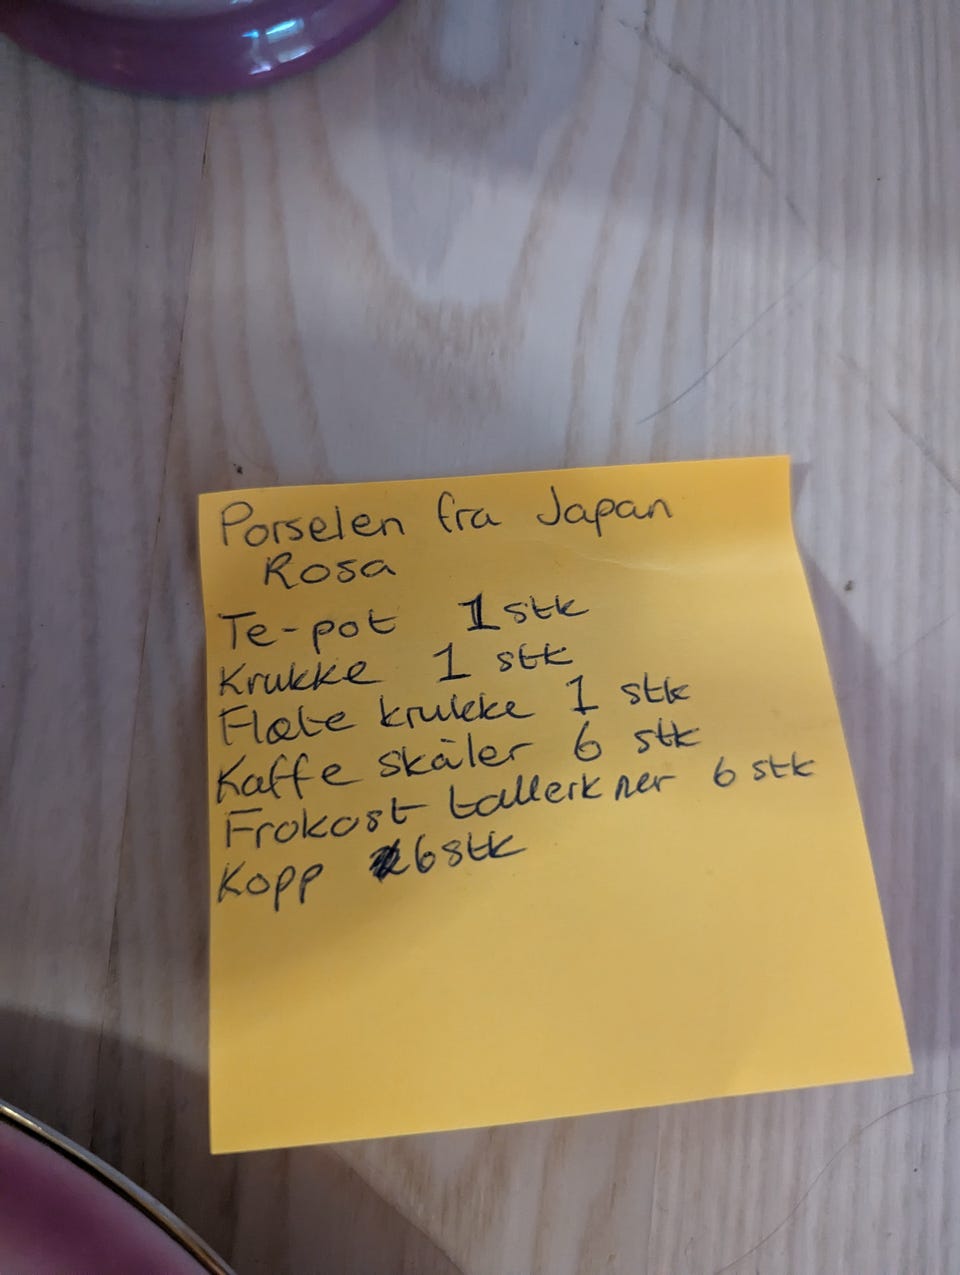 Porselen fra Japan
Rosa
Te-pot 1 stk
Krukke 1 stk
Fløte krukke 1 stk
Kaffe skåler 6 stk
Frokost tallerkner 6 stk
Kopp 6 stk